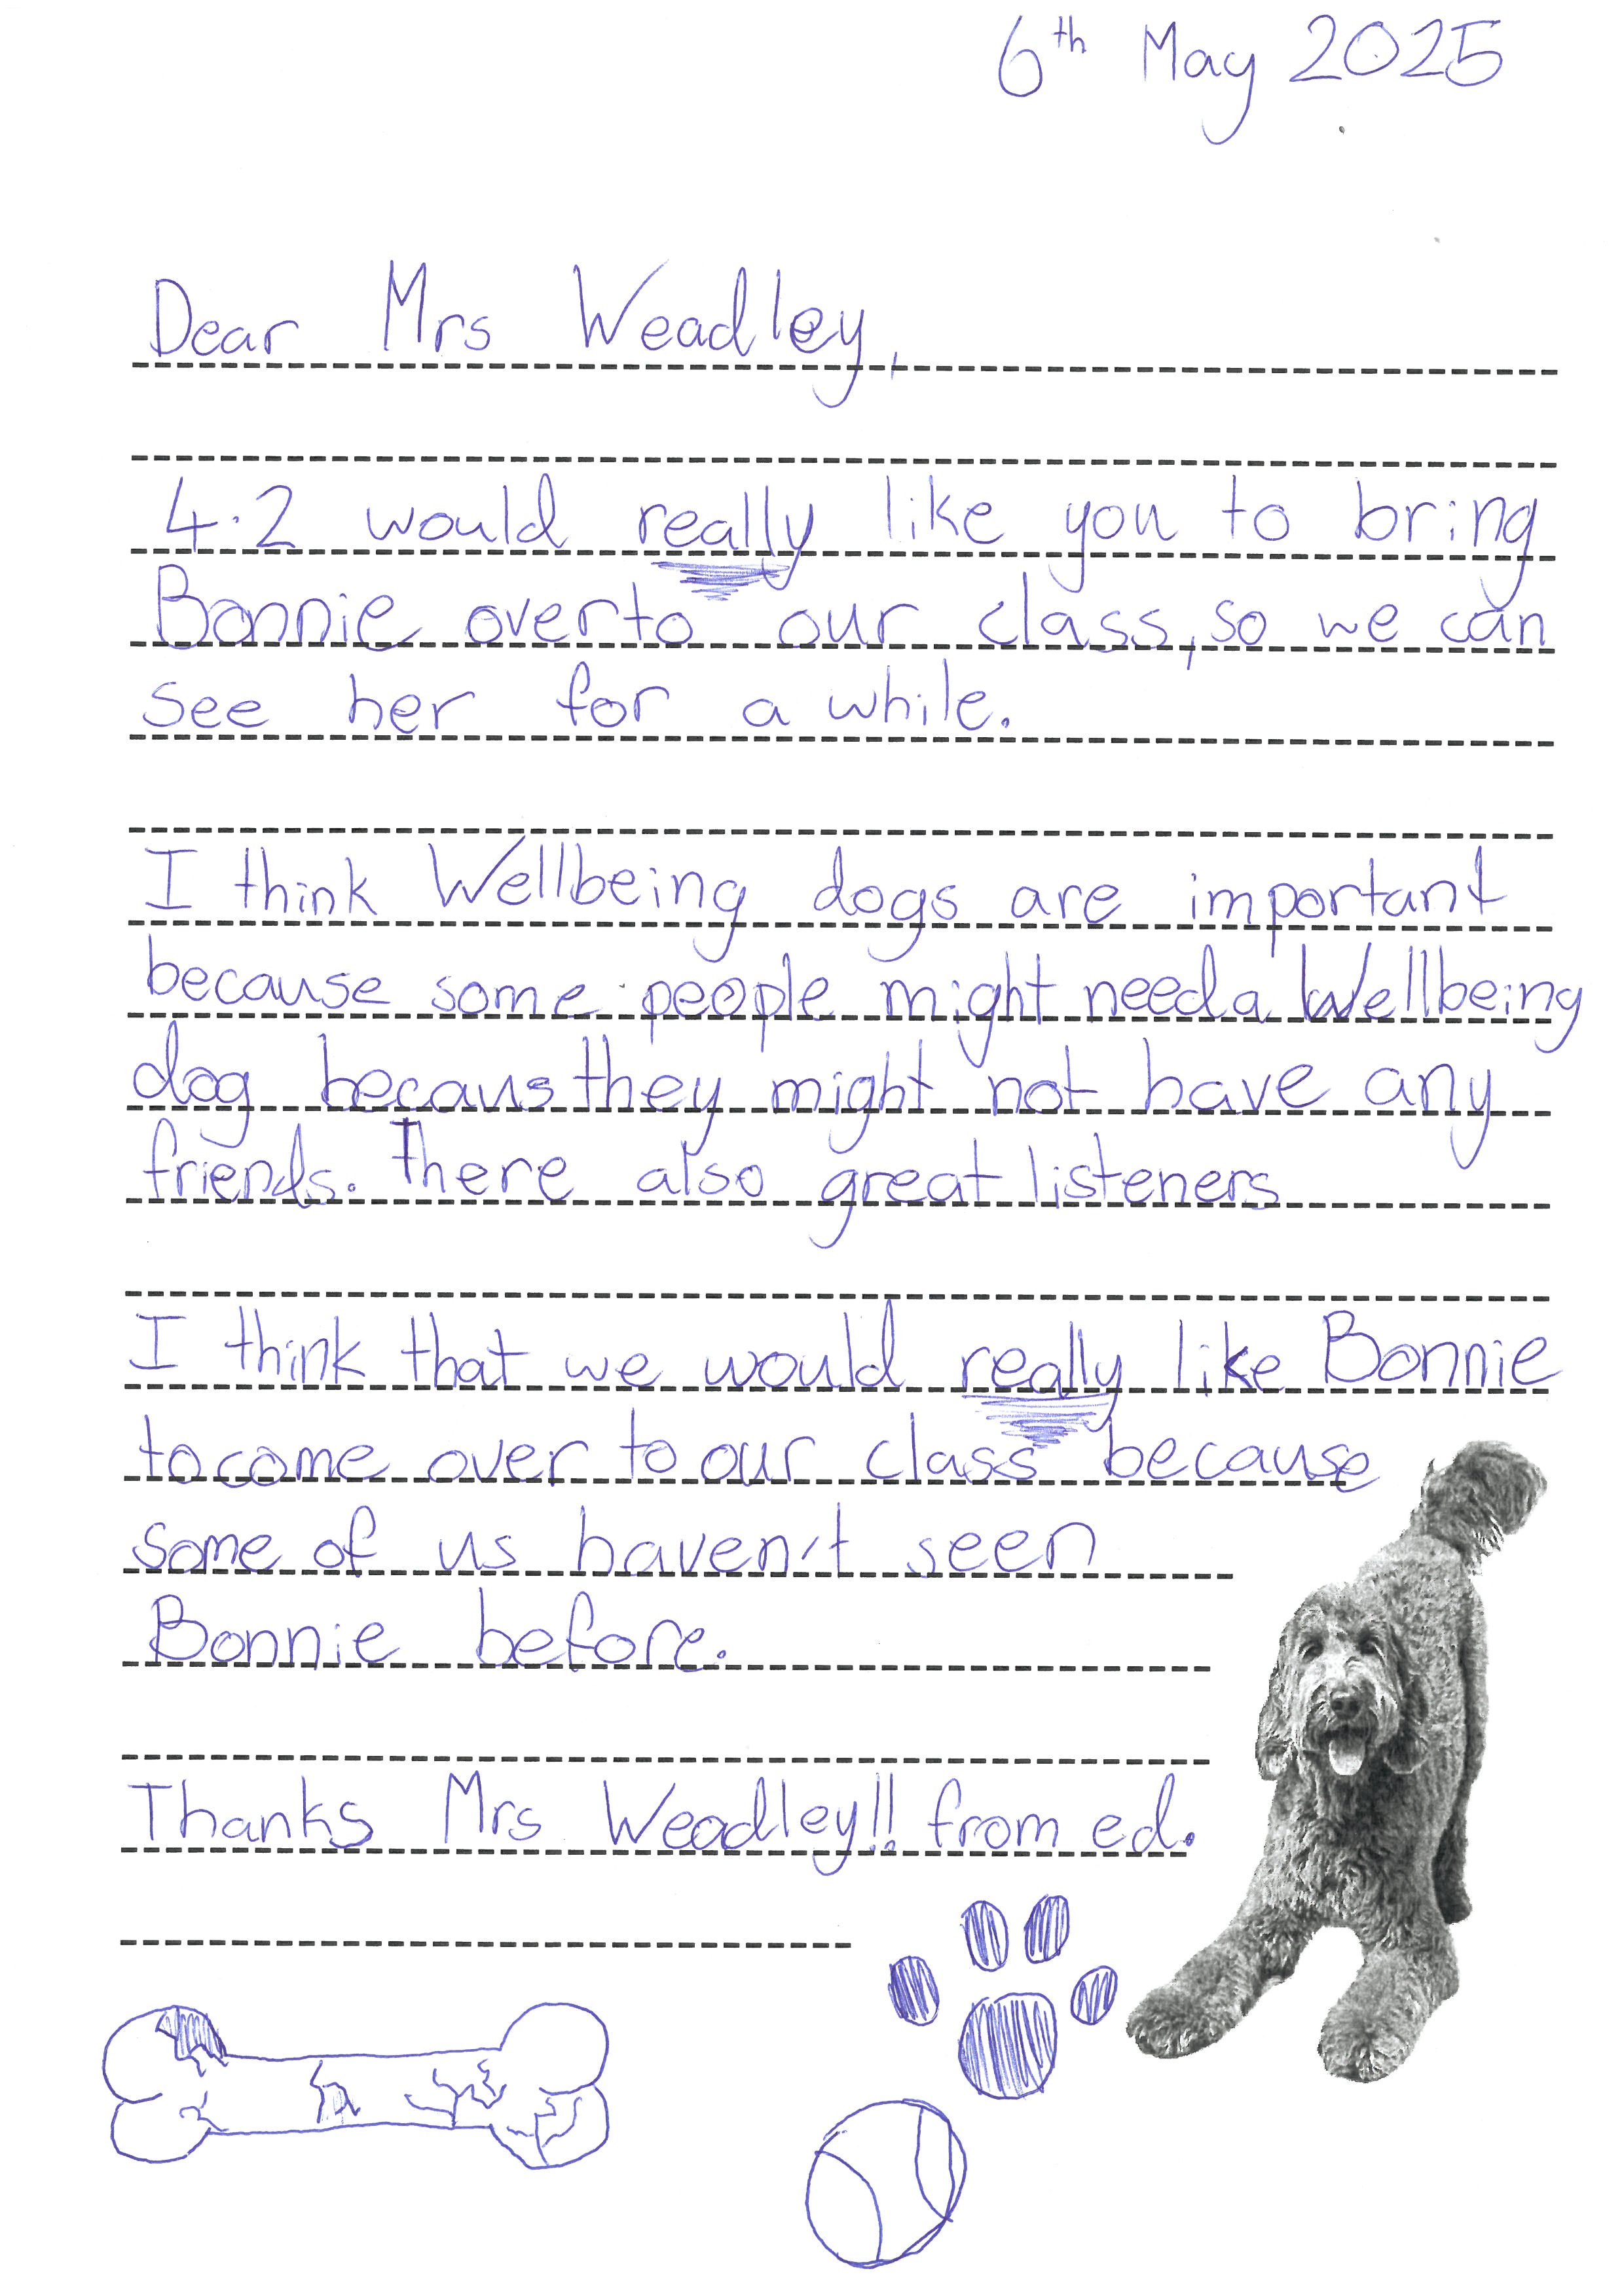 6th May 2025
Dear Mrs Weadley,
4.2 would really like you to bring
Bonnie over to our class, so we can
see her for a while.
I think Wellbeing dogs are important
because some people might need a Wellbeing
dog becaus they might not have any
friends. There also great listeners
I think that we would really like Bonnie
to come over to our class because
some of us haven't seen
Bonnie before.
Thanks Mrs Weadley!! from ed.